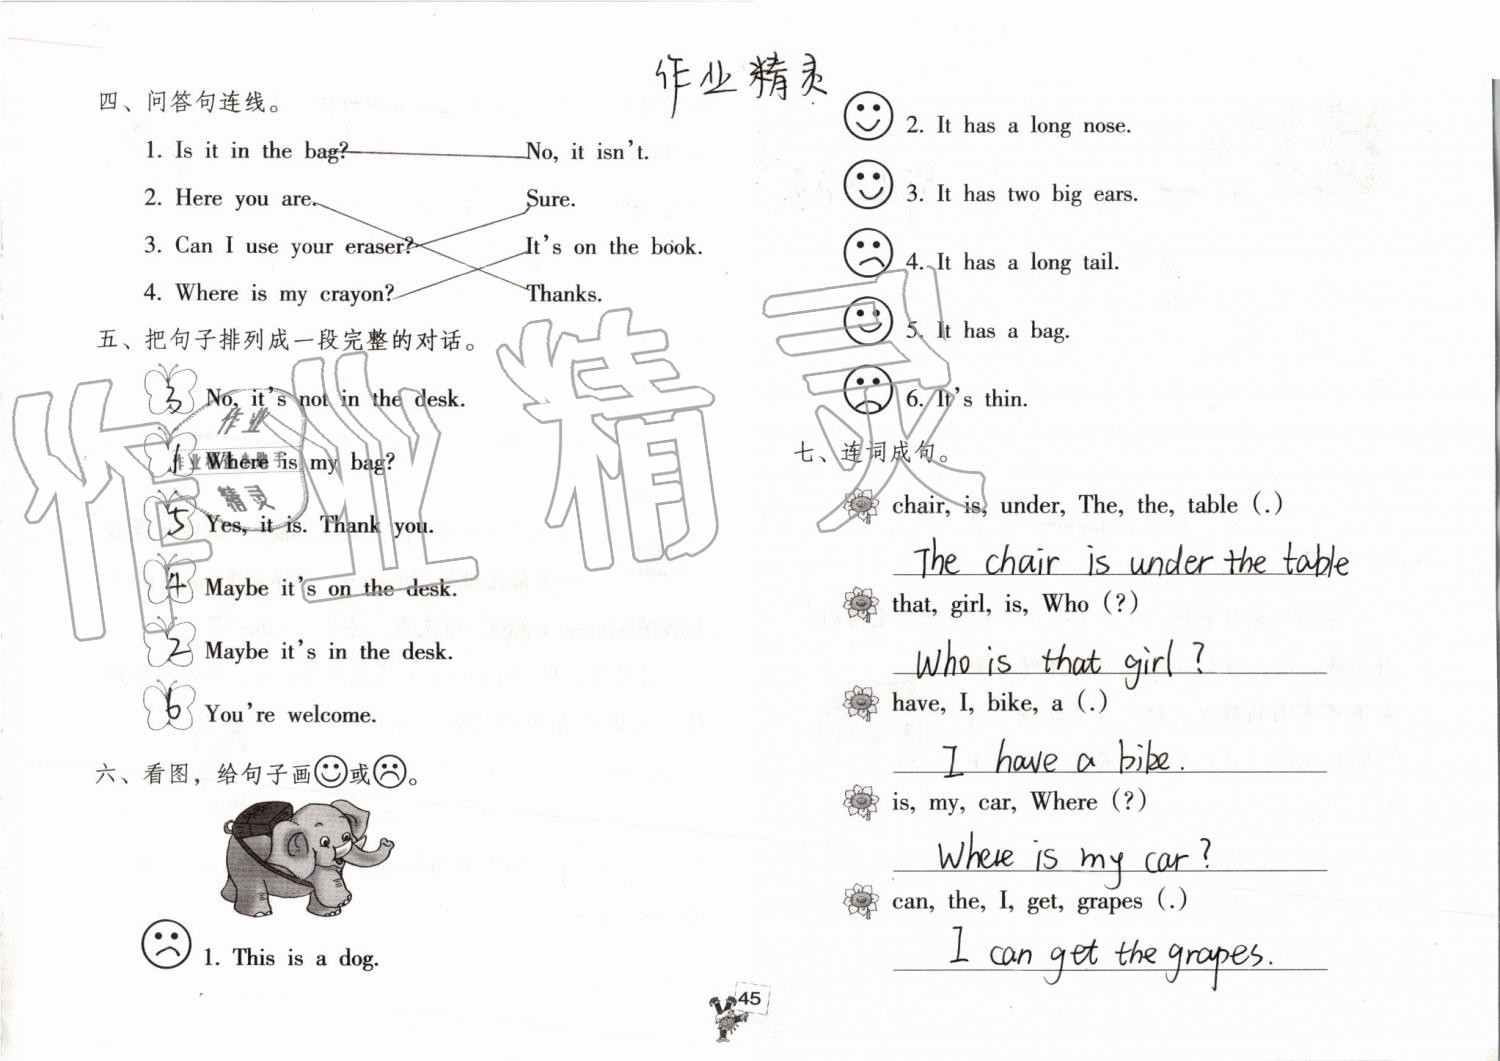 作业精灵
四、问答句连线。
1. Is it in the bag? No, it isn't.
2. Here you are. Sure.
3. Can I use your eraser? It's on the book.
4. Where is my crayon? Thanks.
五、把句子排列成一段完整的对话。
3 No, it's not in the desk.
1 Where is my bag?
5 Yes, it is. Thank you.
4 Maybe it's on the desk.
2 Maybe it's in the desk.
6 You're welcome.
六、看图，给句子画或。
1. This is a dog.
2. It has a long nose.
3. It has two big ears.
4. It has a long tail.
5. It has a bag.
6. It's thin.
七、连词成句。
chair, is, under, The, the, table (.)
The chair is under the table
that, girl, is, Who (?)
Who is that girl?
have, I, bike, a (.)
I have a bike.
is, my, car, Where (?)
Where is my car?
can, the, I, get, grapes (.)
I can get the grapes.
45
作业精灵
作业
精灵